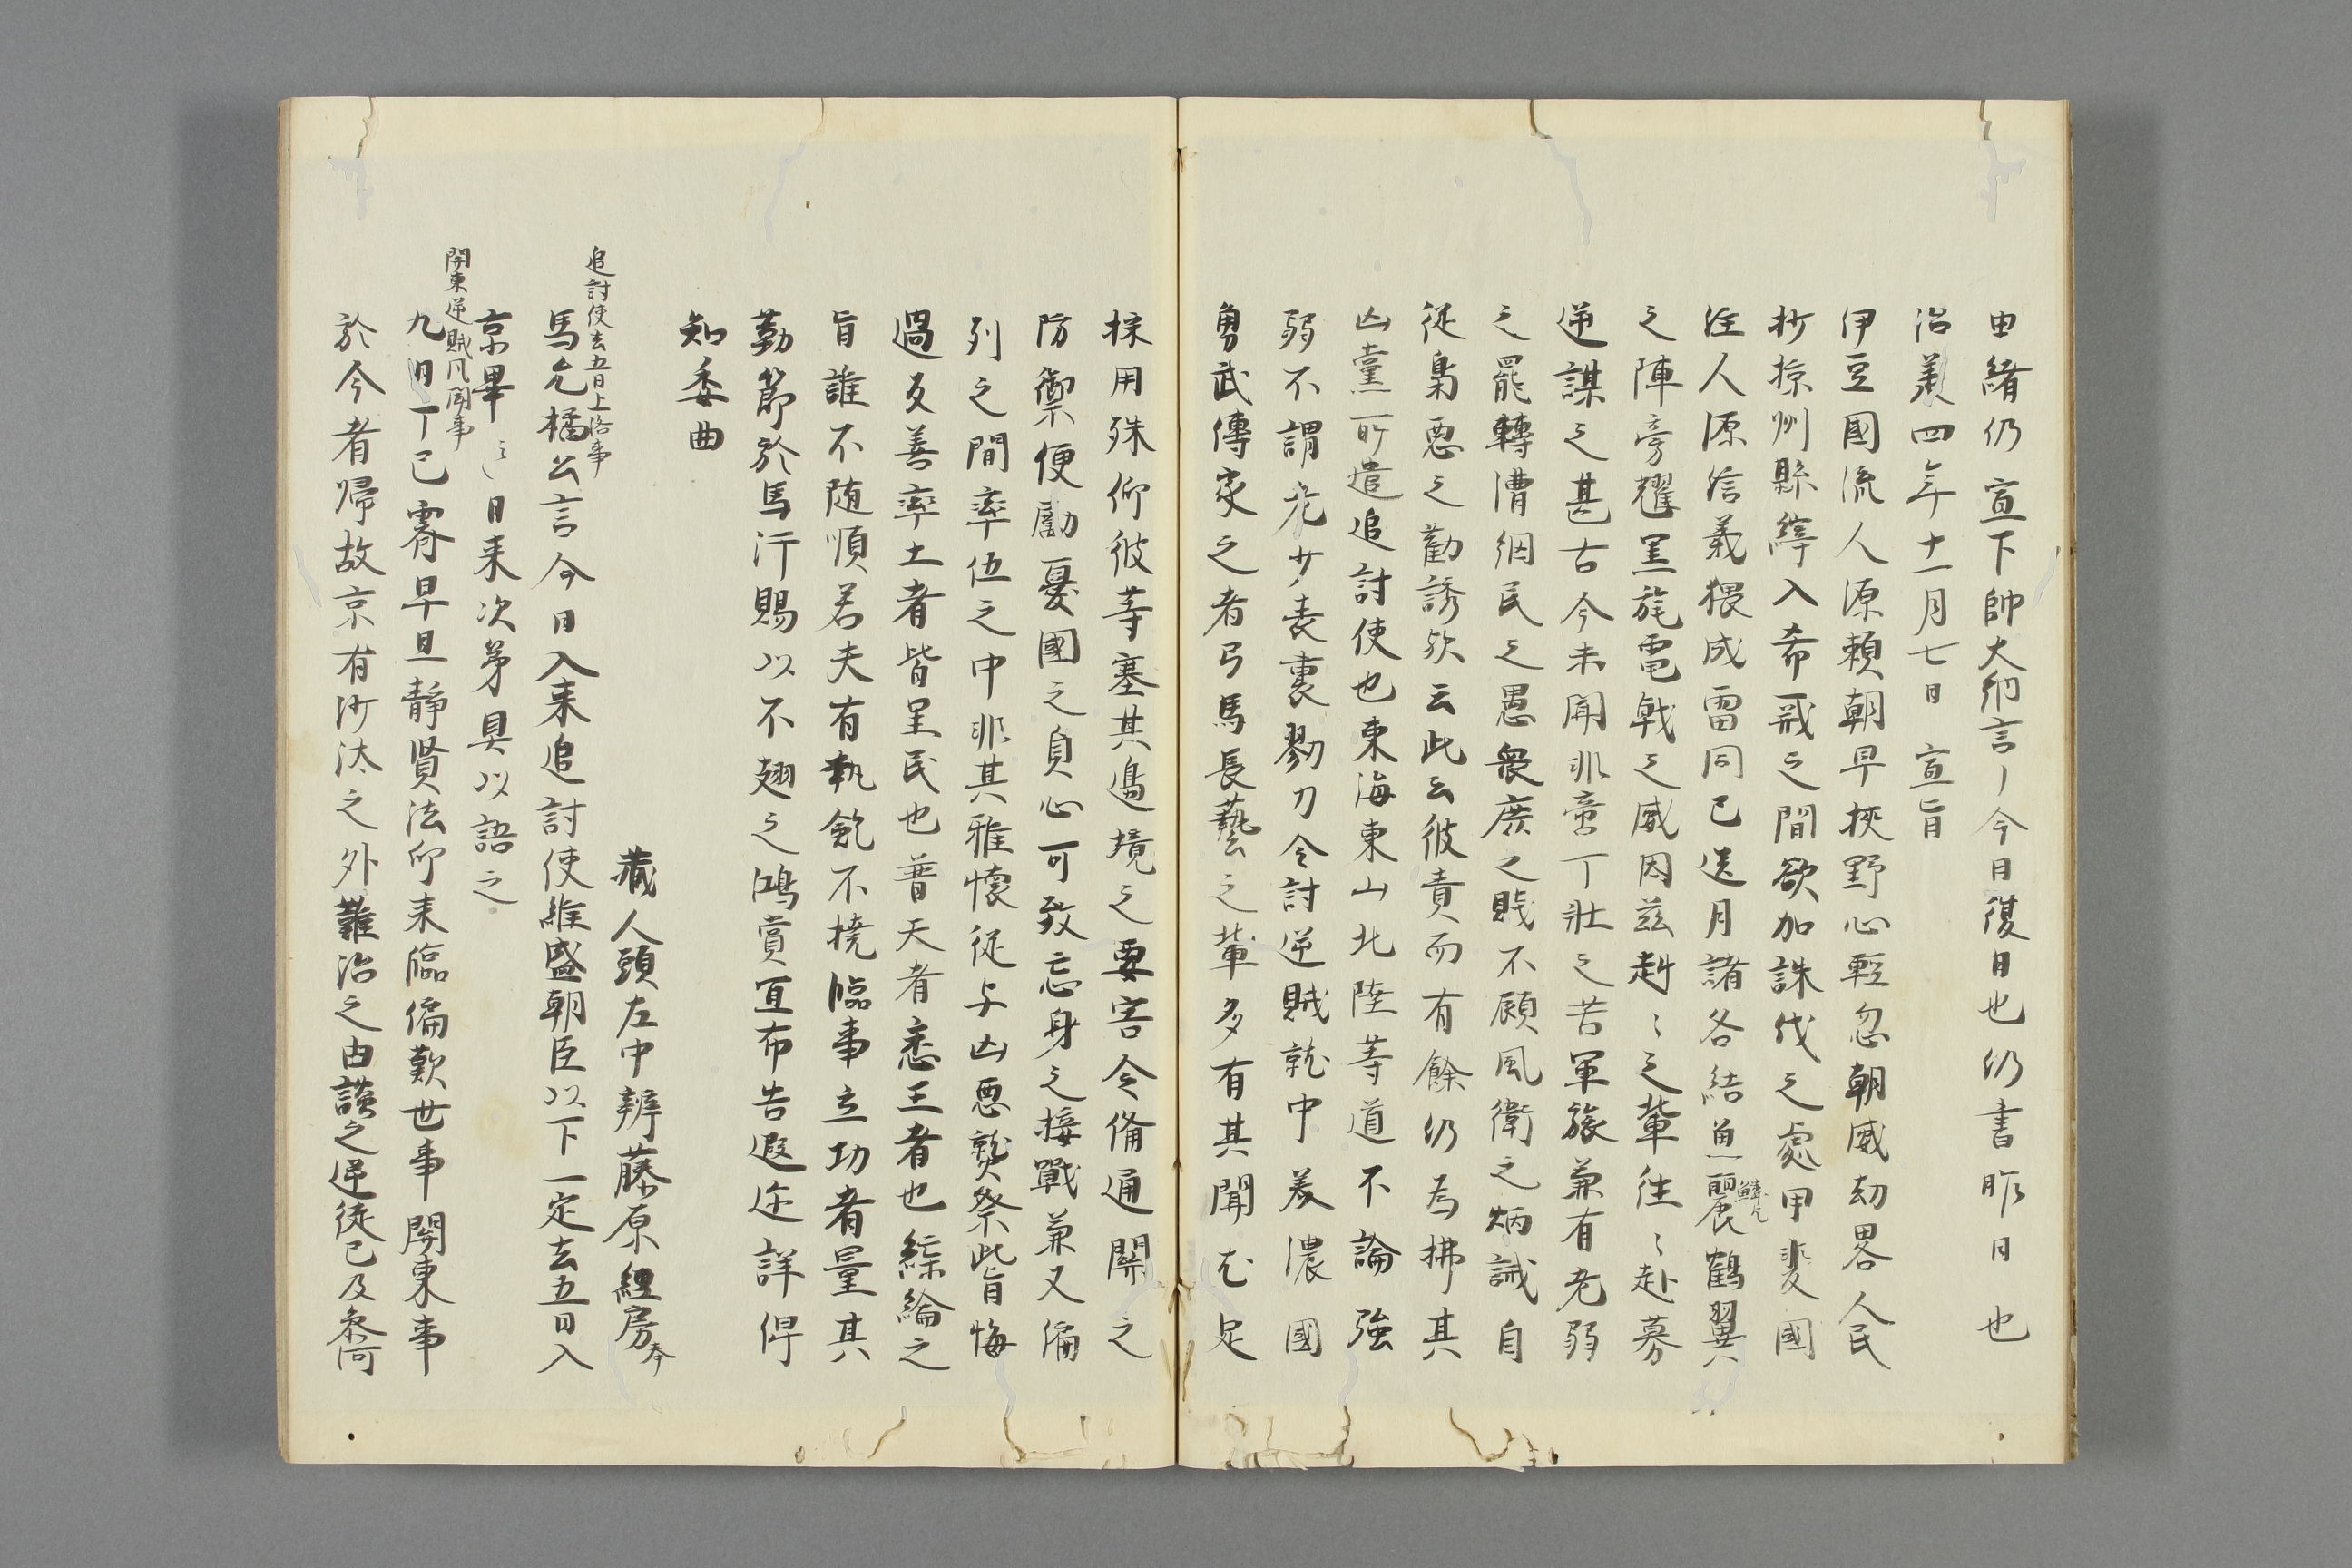 由緒仍宣下帥大納言〻今日復日也仍書昨日也
治承四年十一月七日　宣旨
伊豆國流人源頼朝早挾野心輕忽朝威劫畧人民
抄掠州縣縡入希夷之間欲加誅伐之處甲斐國
住人源信義猥成雷同已送月諸各結魚麗鶴翼
鱗歟
之陣旁耀星旄電戟之威因茲赳〻之輩往〻赴募
逆謀之甚古今未聞非啻丁壯之苦軍旅兼有老弱
之罷轉漕網民之愚衆庶之賤不顧風衛之炳誡自
從梟惡之勸誘欤云此云彼責而有餘仍為拂其
凶黨所遣追討使也東海東山北陸等道不論強
弱不謂老少表裏勠力令討逆賊就中美濃國
勇武傳家之者弓馬長藝之輩多有其聞尤足
採用殊仰彼等塞其邊境之要害令備通關之
防禦便勵憂國之貞心可致忘身之接戰兼又編
列之間率伍之中非其雅懷從与凶惡贅祭此旨悔
過反善率土者皆呈民也普天者悉王者也綜綸之
旨誰不随順若夫有執銳不撓臨事立功者量其
勤節於馬汗賜以不翅之鴻賞宜布告遐迩詳得
知委曲
藏人頭左中辨藤原經房奉
追討使去五日上洛事
馬允橘公言今日入来追討使維盛朝臣以下一定去五日入
京畢〻日来次第具以語之
関東逆賊凡聞事
九日丁巳霽早旦靜賢法印来臨偏歎世事関東事
於今者帰故京有沙汰之外難治之由談之逆徒已及参河